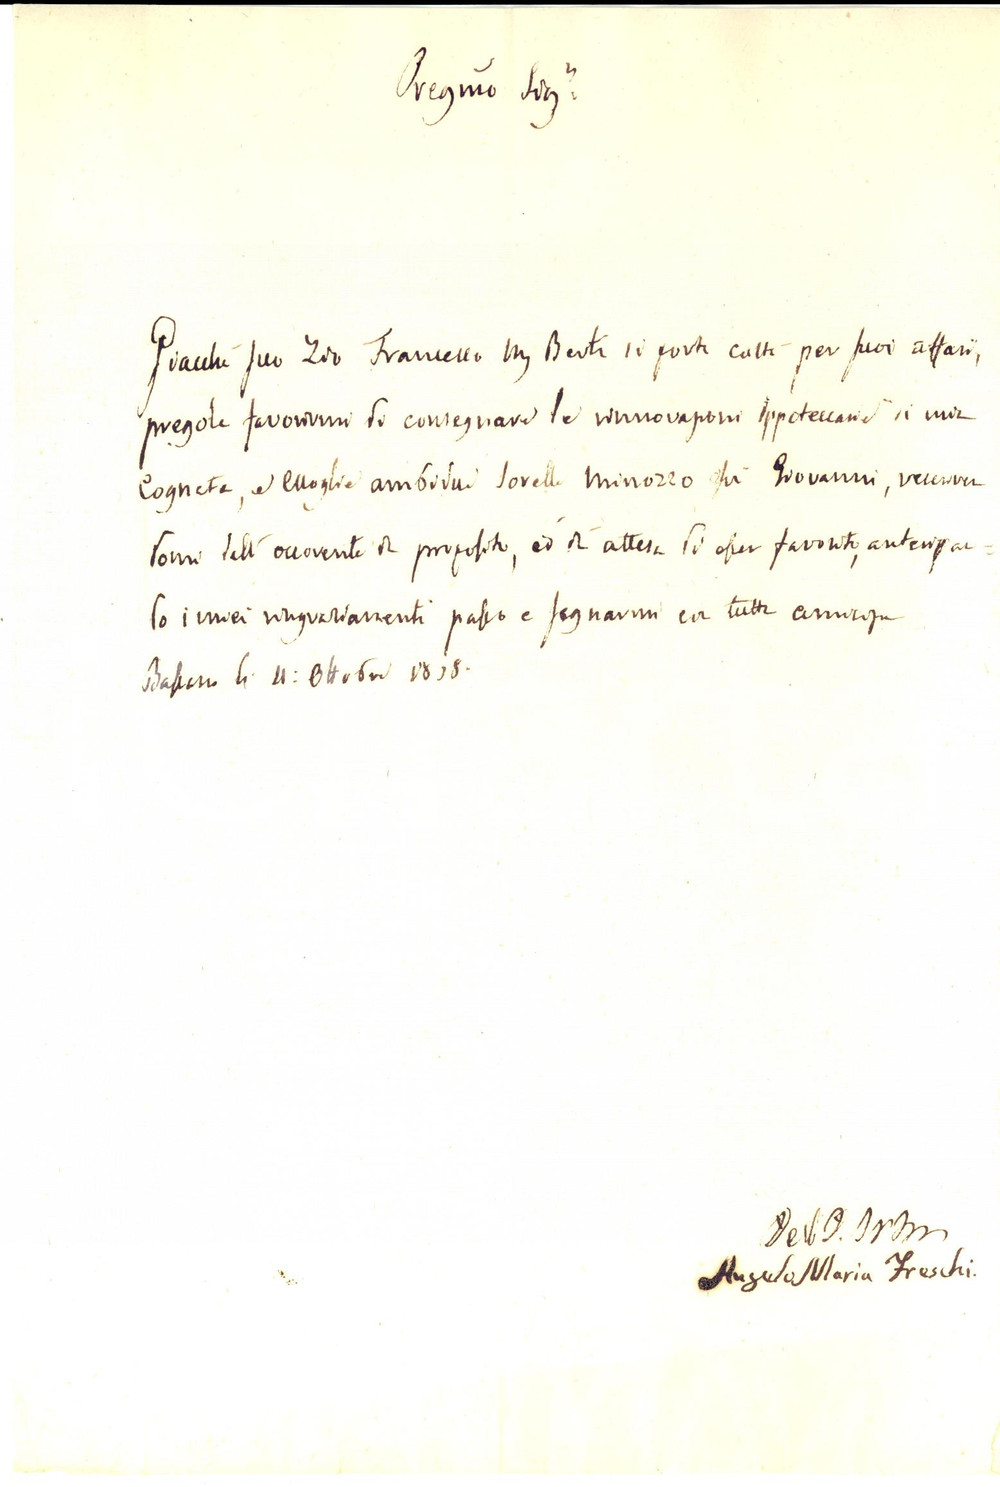 Pregmo Sigr
Giacchè suo Zio Francesco Berti si porta costì per suoi affari,
pregola favorirmi di consegnare le rinnovazioni Ippoteccarie di mia
Cognata, e Moglie ambidue Sorelle Minozzo fù Giovanni, riserven
domi dell' occorente a proposito, ed in attesa di esser favorito, anticipan=
do i miei ringraziamenti passo a segnarmi con tutta amicizia
Bassano li 11: Ottobre 1838.
Angelo Maria Freschi.